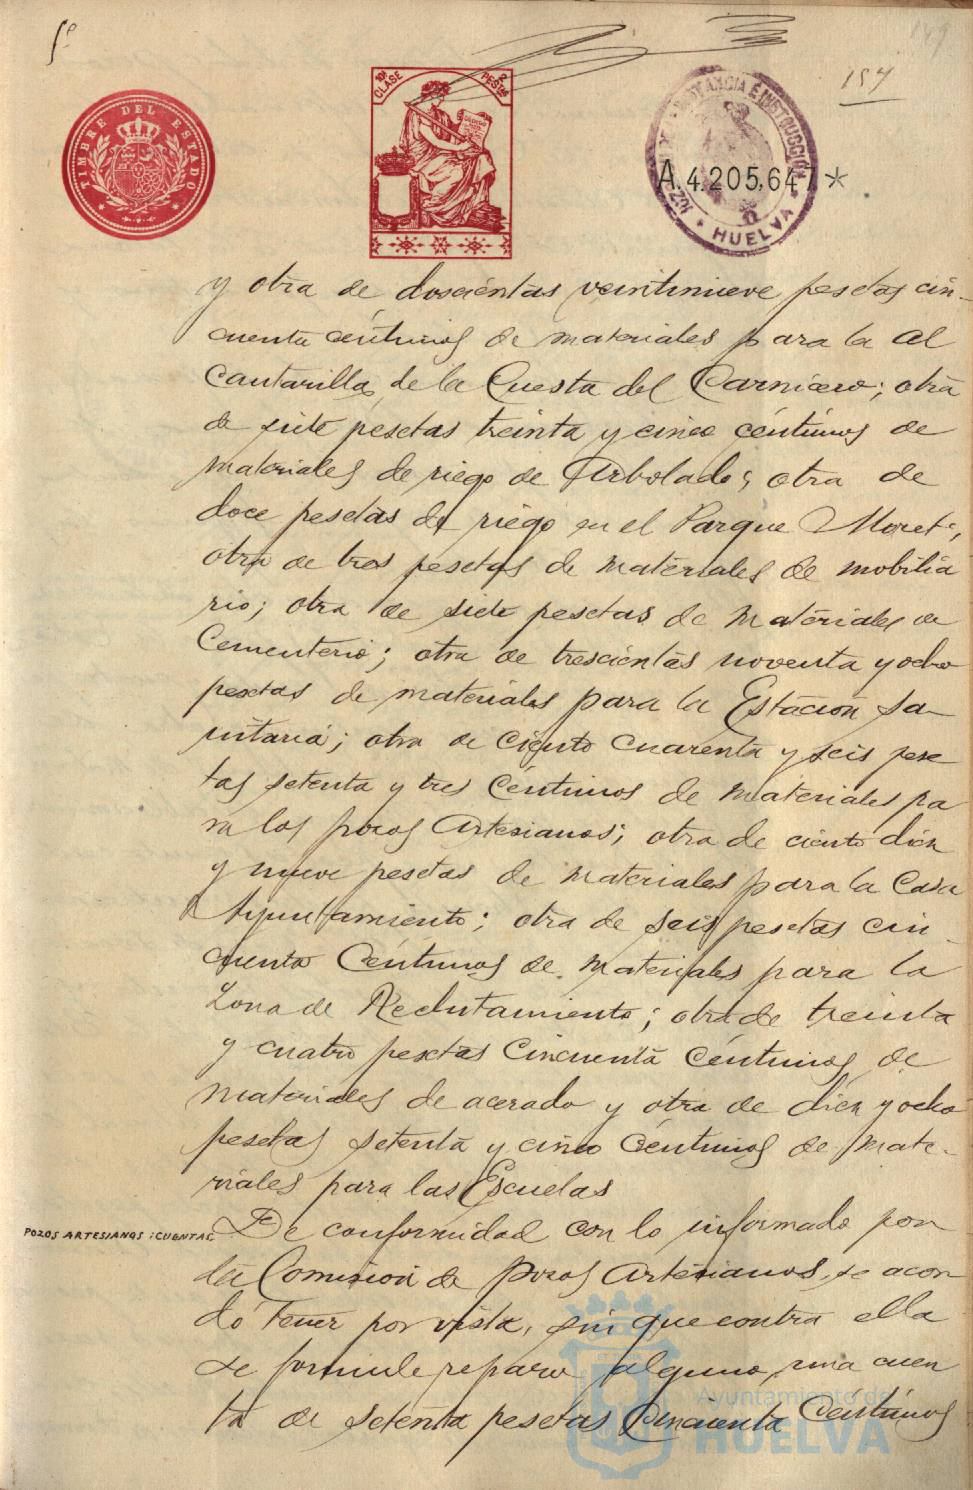 157
TIMBRE DEL ESTADO
10ª CLASE 2 PESTAS
INSTANCIA E INSTRUCCIÓN * HUELVA *
A.4.205.647*
y otra de doscientas veintinueve pesetas cin-
cuenta céntimos de materiales para la al
cantarilla de la Cuesta del Carnicero; otra
de siete pesetas treinta y cinco céntimos de
materiales de riego de Arbolado; otra de
doce pesetas de riego en el Parque Moret;
otra de tres pesetas de materiales de mobilia
rio; otra de siete pesetas de materiales de
Cementerio; otra de trescientas noventa y ocho
pesetas de materiales para la Estación Sa-
nitaria; otra de ciento cuarenta y seis pese
tas setenta y tres céntimos de materiales pa
ra los pozos Artesianos; otra de ciento diez
y nueve pesetas de materiales para la Casa
Ayuntamiento; otra de seis pesetas cin-
cuenta céntimos de materiales para la
Zona de Reclutamiento; otra de treinta
y cuatro pesetas cincuenta céntimos de
materiales de acerado y otra de diez y ocho
pesetas setenta y cinco céntimos de mate-
riales para las Escuelas
POZOS ARTESIANOS: CUENTAS
De conformidad con lo informado por
la Comisión de Pozos Artesianos, se acor
dó tener por vista, sin que contra ella
se formule reparo alguno, una cuen
ta de setenta pesetas cincuenta céntimos
Ayuntamiento de
HUELVA